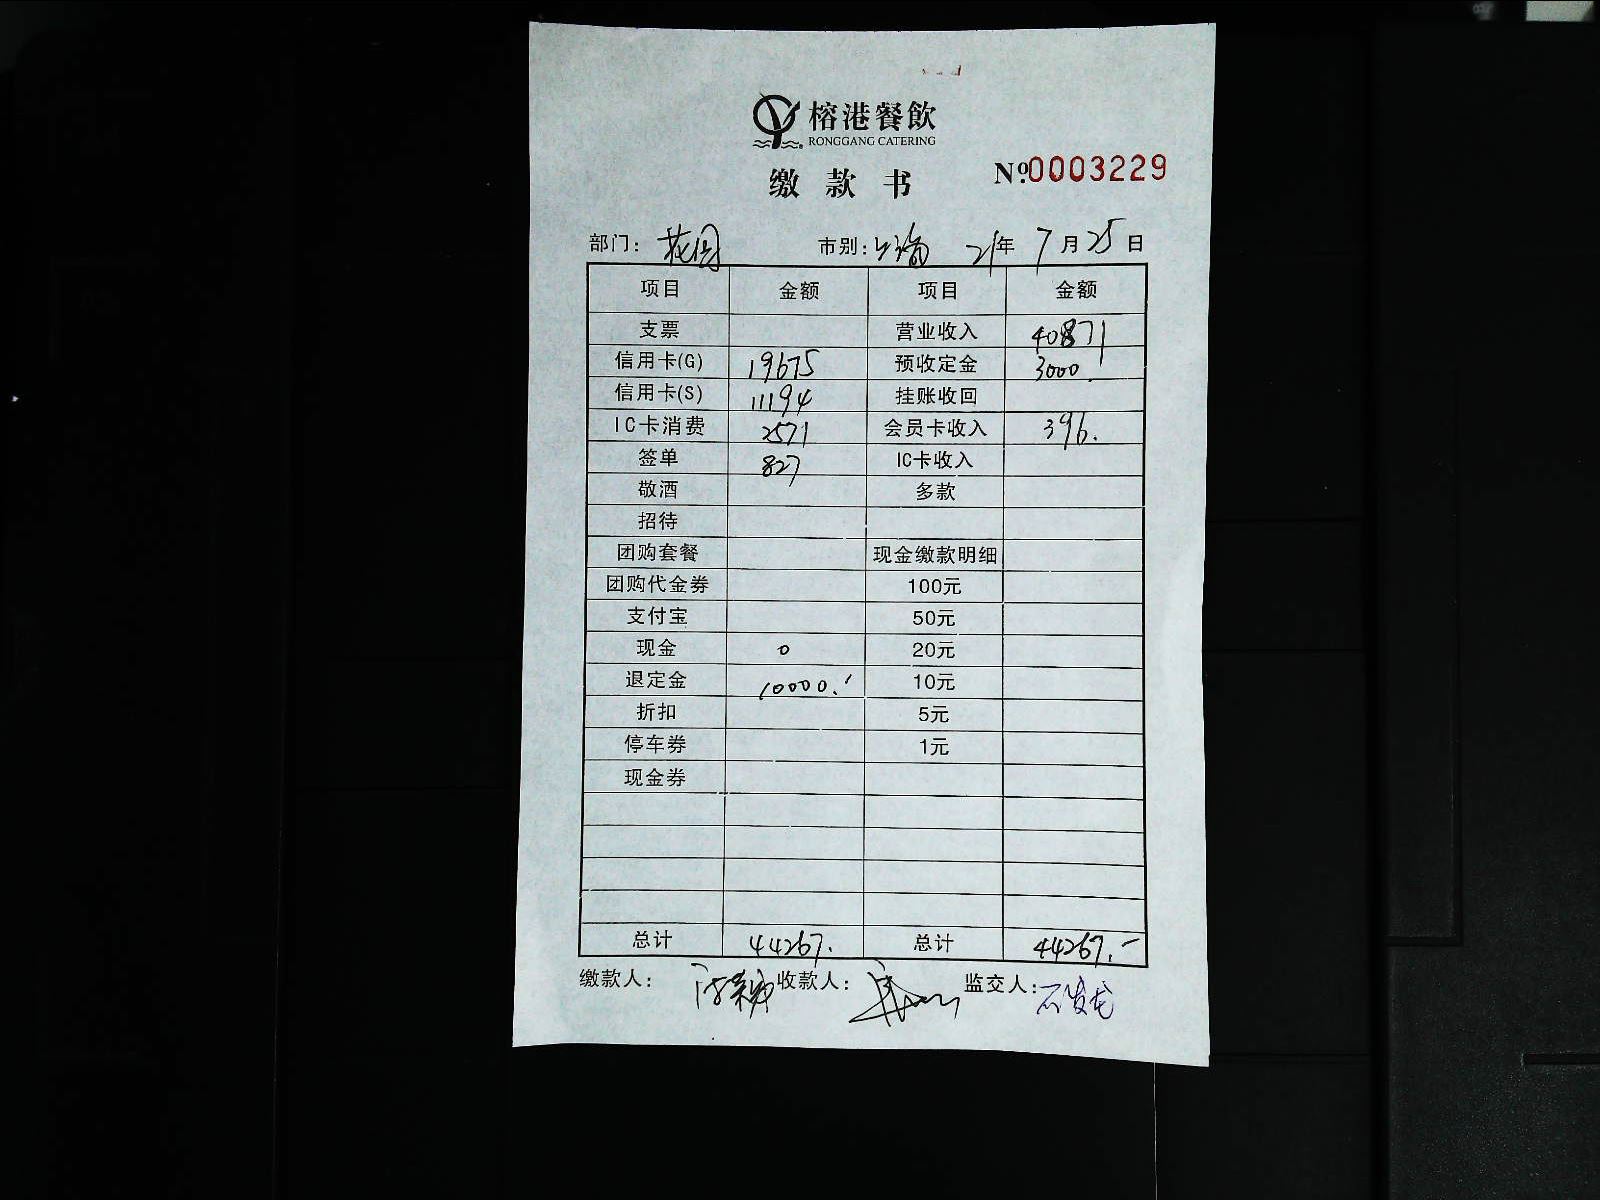 榕港餐飲
RONGGANG CATERING
缴款书 Nº.0003229
部门: 花园 市别: 21年 7月25日
项目 金额 项目 金额
支票 营业收入 40871
信用卡(G) 19675 预收定金 3000.
信用卡(S) 11194 挂账收回
IC卡消费 2571 会员卡收入 396.
签单 827 IC卡收入
敬酒 多款
招待
团购套餐 现金缴款明细
团购代金券 100元
支付宝 50元
现金 0 20元
退定金 10000. 10元
折扣 5元
停车券 1元
现金券
总计 44267. 总计 44267.-
缴款人: 收款人: 监交人: